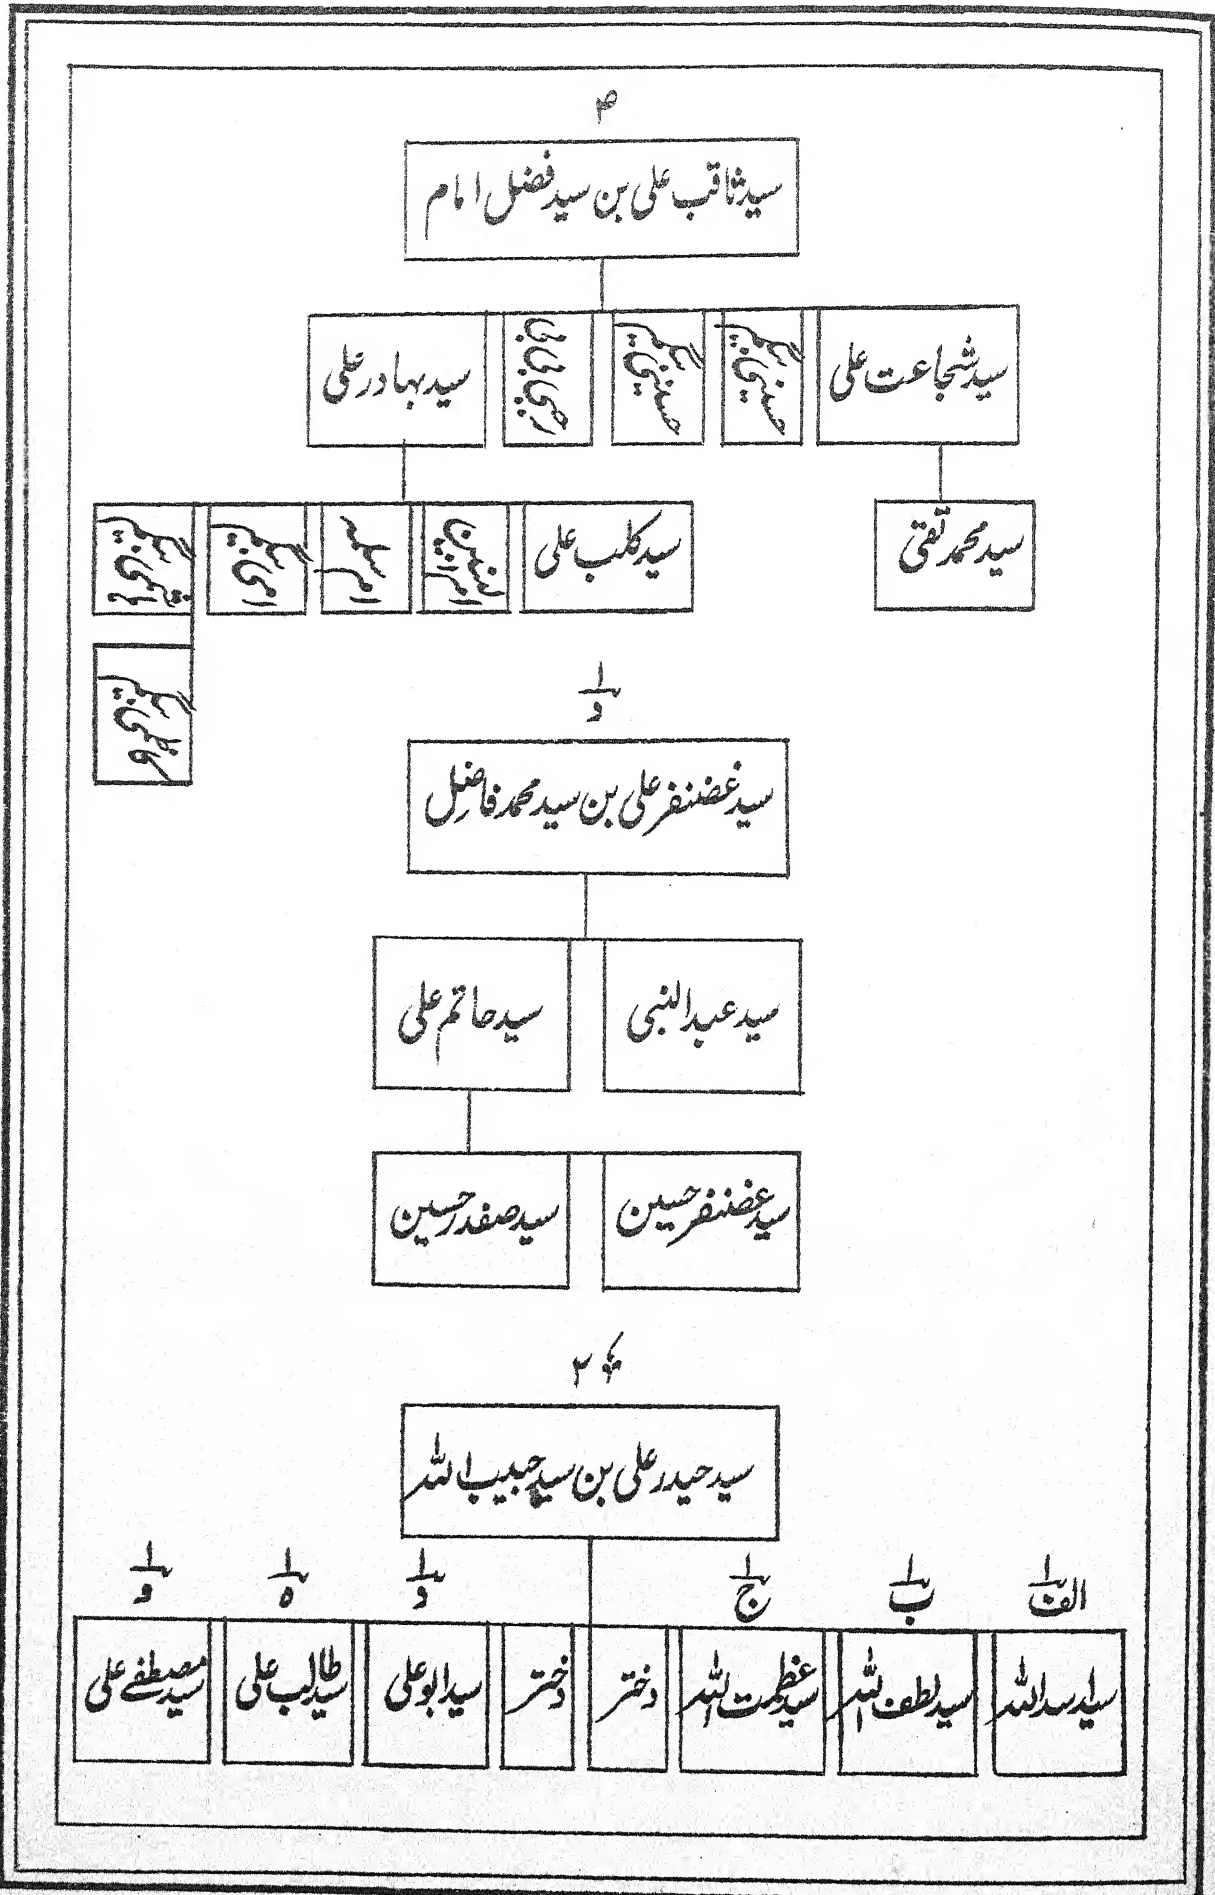 ۴
سید ثاقب علی بن سید فضل امام
سید شجاعت علی
حسینی بیگم
حسینی بیگم
رجبی بی بی
سید بہادر علی
سید محمد تقی
سید کلب علی
ام سلمہ
امی بیگم
۱/د
سید غضنفر علی بن سید محمد فاضل
سید عبدالنبی
سید حاتم علی
سید غضنفر حسین
سید صفدر حسین
۲
سید حیدر علی بن سید حبیب اللہ
۱/الف
۱/ب
۱/ج
۱/د
۱/ہ
۱/و
سید اسد اللہ
سید لطف اللہ
سید عظمت اللہ
دختر
دختر
سید ابو علی
سید طالب علی
سید مصطفےٰ علی